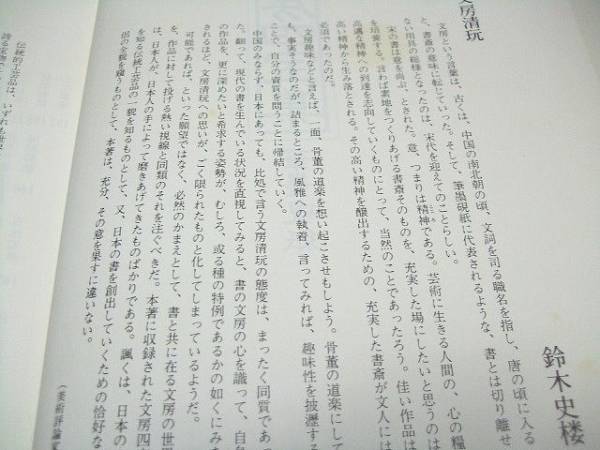 文房清玩
鈴木史楼
文房という言葉は、古くは、中国の南北朝の頃、文詞を司る職名を指し、唐の頃に入る
と、書斎の意味に転じていった。そして、筆墨硯紙に代表されるような、書とは切り離せ
ない用具の総称となったのは、宋代を迎えてのことらしい。
宋の書は意を尚ぶ、とされた。意、つまりは精神である。芸術に生きる人間の、心の糧
を培養する、言わば素地をつくりあげる書斎そのものを、充実した場にしたいと思うのは、
高邁な精神への到達を志向していくものにとって、当然のことであったろう。佳い作品は、
高い精神から生み落とされる。その高い精神を醸出するための、充実した書斎が文人には
必須であったのだ。
文房趣味などと言えば、一面、骨董の道楽を想い起こさせもしよう。骨董の道楽にして
も、事実そうなのだが、詰まるところ、風雅への執着、言ってみれば、趣味性を披瀝する
ことで、自分の資質を問うことに帰結していく。
中国のみならず、日本にあっても、比処で言う文房清玩の態度は、まったく同質であっ
た。翻って、現代の書を生んでいる状況を直視してみると、書の文房の心を識って、自
の作品を、更に深めたいと希求する姿勢が、むしろ、或る種の特例であるかの如くにみ
されるほど、文房清玩への思いが、ごく限られたものと化してしまっているようだ。
可能であれば、といった願望ではなく、必然のかまえとして、書と共に在る文房の世
を、作品に対して投げる熱い視線と同類のそれを注ぐべきだ。本著に収録された文房四
は、日本人が、日本人の手によって磨きあげてきたものばかりである。諷くは、日本の
を知る伝統工芸品の一貌を知るものとして、又、日本の書を創出していくための恰好な
侶の全貌を窺うものとして、本著は、充分、その意を果すに違いない。
(美術評論家
伝統的工芸品は、いずれも歴史